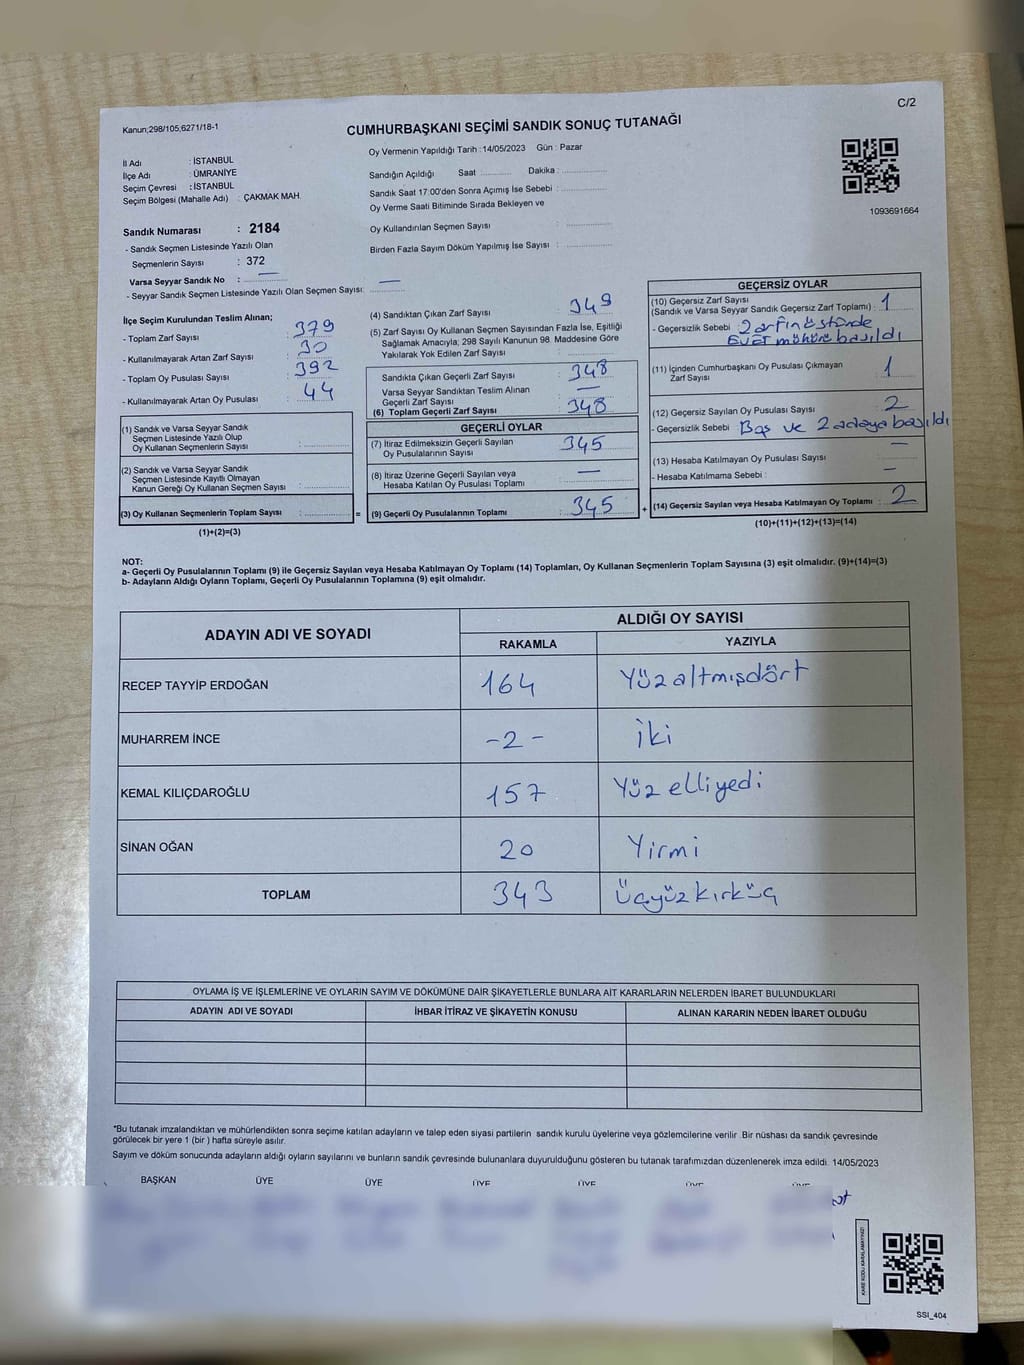 C/2
Kanun;298/105,6271/18-1
CUMHURBAŞKANI SEÇİMİ SANDIK SONUÇ TUTANAĞI
İl Adı : İSTANBUL
İlçe Adı : ÜMRANİYE
Seçim Çevresi : İSTANBUL
Seçim Bölgesi (Mahalle Adı) : ÇAKMAK MAH.
Oy Vermenin Yapıldığı Tarih : 14/05/2023 Gün : Pazar
Sandığın Açıldığı Saat ............ Dakika : ............
Sandık Saat 17:00'den Sonra Açımış İse Sebebi : ............
Oy Verme Saati Bitiminde Sırada Bekleyen ve
Oy Kullandırılan Seçmen Sayısı : ............
Birden Fazla Sayım Döküm Yapılmış İse Sayısı : ............
1093691664
Sandık Numarası : 2184
- Sandık Seçmen Listesinde Yazılı Olan
Seçmenlerin Sayısı : 372
Varsa Seyyar Sandık No : —
- Seyyar Sandık Seçmen Listesinde Yazılı Olan Seçmen Sayısı: —
İlçe Seçim Kurulundan Teslim Alınan;
- Toplam Zarf Sayısı : 379
- Kullanılmayarak Artan Zarf Sayısı : 30
- Toplam Oy Pusulası Sayısı : 392
- Kullanılmayarak Artan Oy Pusulası : 44
(1) Sandık ve Varsa Seyyar Sandık
Seçmen Listesinde Yazılı Olup
Oy Kullanan Seçmenlerin Sayısı : ............
(2) Sandık ve Varsa Seyyar Sandık
Seçmen Listesinde Kayıtlı Olmayan
Kanun Gereği Oy Kullanan Seçmen Sayısı : ............
(3) Oy Kullanan Seçmenlerin Toplam Sayısı : ............
(1)+(2)=(3)
=
(4) Sandıktan Çıkan Zarf Sayısı : 349
(5) Zarf Sayısı Oy Kullanan Seçmen Sayısından Fazla İse, Eşitliği
Sağlamak Amacıyla; 298 Sayılı Kanunun 98. Maddesine Göre
Yakılarak Yok Edilen Zarf Sayısı : ............
Sandıkta Çıkan Geçerli Zarf Sayısı : 348
Varsa Seyyar Sandıktan Teslim Alınan
Geçerli Zarf Sayısı : —
(6) Toplam Geçerli Zarf Sayısı : 348
GEÇERLİ OYLAR
(7) İtiraz Edilmeksizin Geçerli Sayılan
Oy Pusulalarının Sayısı : 345
(8) İtiraz Üzerine Geçerli Sayılan veya
Hesaba Katılan Oy Pusulası Toplamı : —
(9) Geçerli Oy Pusulalarının Toplamı : 345
+
GEÇERSİZ OYLAR
(10) Geçersiz Zarf Sayısı
(Sandık ve Varsa Seyyar Sandık Geçersiz Zarf Toplamı) : 1
- Geçersizlik Sebebi : Zarfın üstünde
EVET mühürü basıldı
(11) İçinden Cumhurbaşkanı Oy Pusulası Çıkmayan
Zarf Sayısı : 1
(12) Geçersiz Sayılan Oy Pusulası Sayısı : 2
- Geçersizlik Sebebi : Boş ve 2 adaya basıldı
(13) Hesaba Katılmayan Oy Pusulası Sayısı : —
- Hesaba Katılmama Sebebi : —
(14) Geçersiz Sayılan veya Hesaba Katılmayan Oy Toplamı : 2
(10)+(11)+(12)+(13)=(14)
NOT:
a- Geçerli Oy Pusulalarının Toplamı (9) ile Geçersiz Sayılan veya Hesaba Katılmayan Oy Toplamı (14) Toplamları, Oy Kullanan Seçmenlerin Toplam Sayısına (3) eşit olmalıdır. (9)+(14)=(3)
b- Adayların Aldığı Oyların Toplamı, Geçerli Oy Pusulalarının Toplamına (9) eşit olmalıdır.
ADAYIN ADI VE SOYADI
ALDIĞI OY SAYISI
RAKAMLA YAZIYLA
RECEP TAYYİP ERDOĞAN 164 Yüzaltmışdört
MUHARREM İNCE -2- İki
KEMAL KILIÇDAROĞLU 157 Yüzelliyedi
SİNAN OĞAN 20 Yirmi
TOPLAM 343 Üçyüzkırküç
OYLAMA İŞ VE İŞLEMLERİNE VE OYLARIN SAYIM VE DÖKÜMÜNE DAİR ŞİKAYETLERLE BUNLARA AİT KARARLARIN NELERDEN İBARET BULUNDUKLARI
ADAYIN ADI VE SOYADI İHBAR İTİRAZ VE ŞİKAYETİN KONUSU ALINAN KARARIN NEDEN İBARET OLDUĞU
*Bu tutanak imzalandıktan ve mühürlendikten sonra seçime katılan adayların ve talep eden siyasi partilerin sandık kurulu üyelerine veya gözlemcilerine verilir .Bir nüshası da sandık çevresinde
görülecek bir yere 1 (bir ) hafta süreyle asılır.
Sayım ve döküm sonucunda adayların aldığı oyların sayılarını ve bunların sandık çevresinde bulunanlara duyurulduğunu gösteren bu tutanak tarafımızdan düzenlenerek imza edildi. 14/05/2023
BAŞKAN ÜYE ÜYE ÜYE ÜYE ÜYE ÜYE
KARE KODU KARALAMAYINIZ!
SSI_404